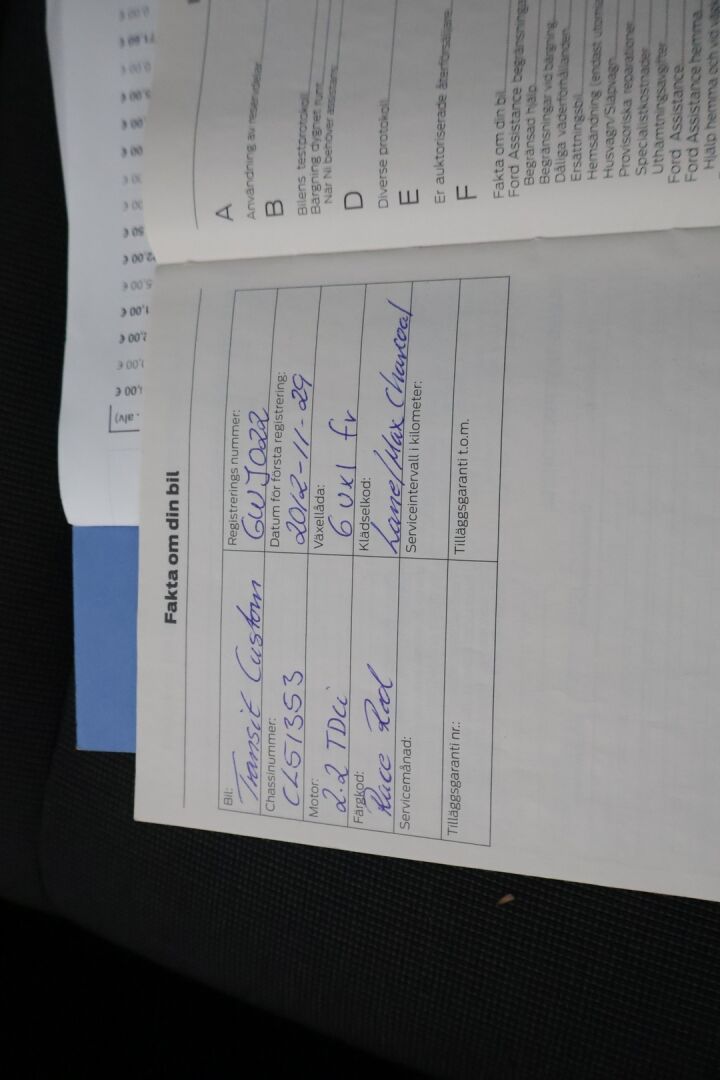 Fakta om din bil
Bil: Transit Custom
Registrerings nummer: GWJ022
Chassinummer: CL51353
Datum för första registrering: 2012-11-29
Motor: 2.2 TDCi
Växellåda: 6 vxl fr
Färgkod: Race Red
Klädselkod: Lane/Max Charcoal
Servicemånad:
Serviceintervall i kilometer:
Tilläggsgaranti nr.:
Tilläggsgaranti t.o.m.
A
Användning av reservdelar
B
Bilens testprotokoll
Bärgning dygnet runt
När Ni behöver assistans
D
Diverse protokoll
E
Er auktoriserade återförsäljare
F
Fakta om din bil
Ford Assistance begränsnings
Begränsad hjälp
Begränsningar vid bärgning
Dåliga väderförhållanden
Ersättningsbil
Hemsändning (endast utomla
Husvagn/Släpvagn
Provisoriska reparationer
Specialistkostnader
Uthämtningsavgifter
Ford Assistance
Ford Assistance hemma
Hjälp hemma och vid
. alv)
1,00 €